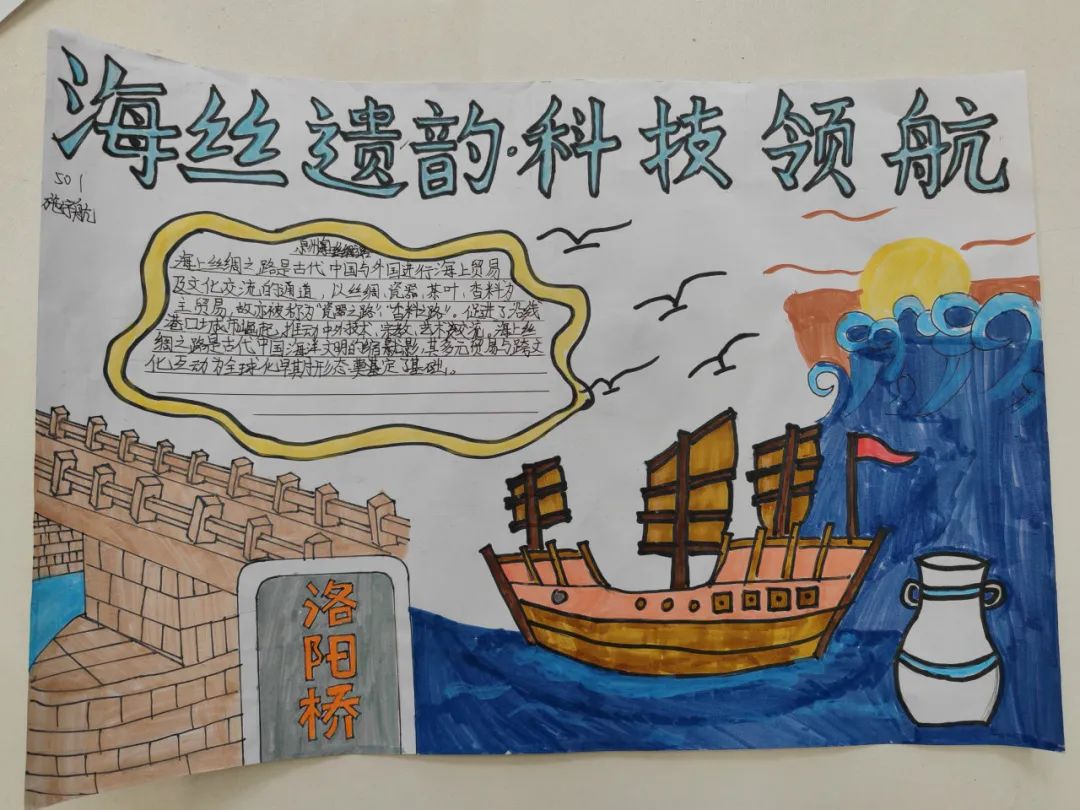 海丝遗韵·科技领航
501
航
泉州海上丝绸之路
海上丝绸之路是古代中国与外国进行海上贸易
及文化交流的通道,以丝绸、瓷器、茶叶、香料为
主贸易,故亦被称为“瓷器之路”、“香料之路”。促进了沿线
港口城市崛起,推动中外技术、宗教、艺术交流。海上丝
绸之路是古代中国海洋文明的缩影,其多元贸易与跨文
化互动为全球化早期形态奠定了基础。
洛阳桥